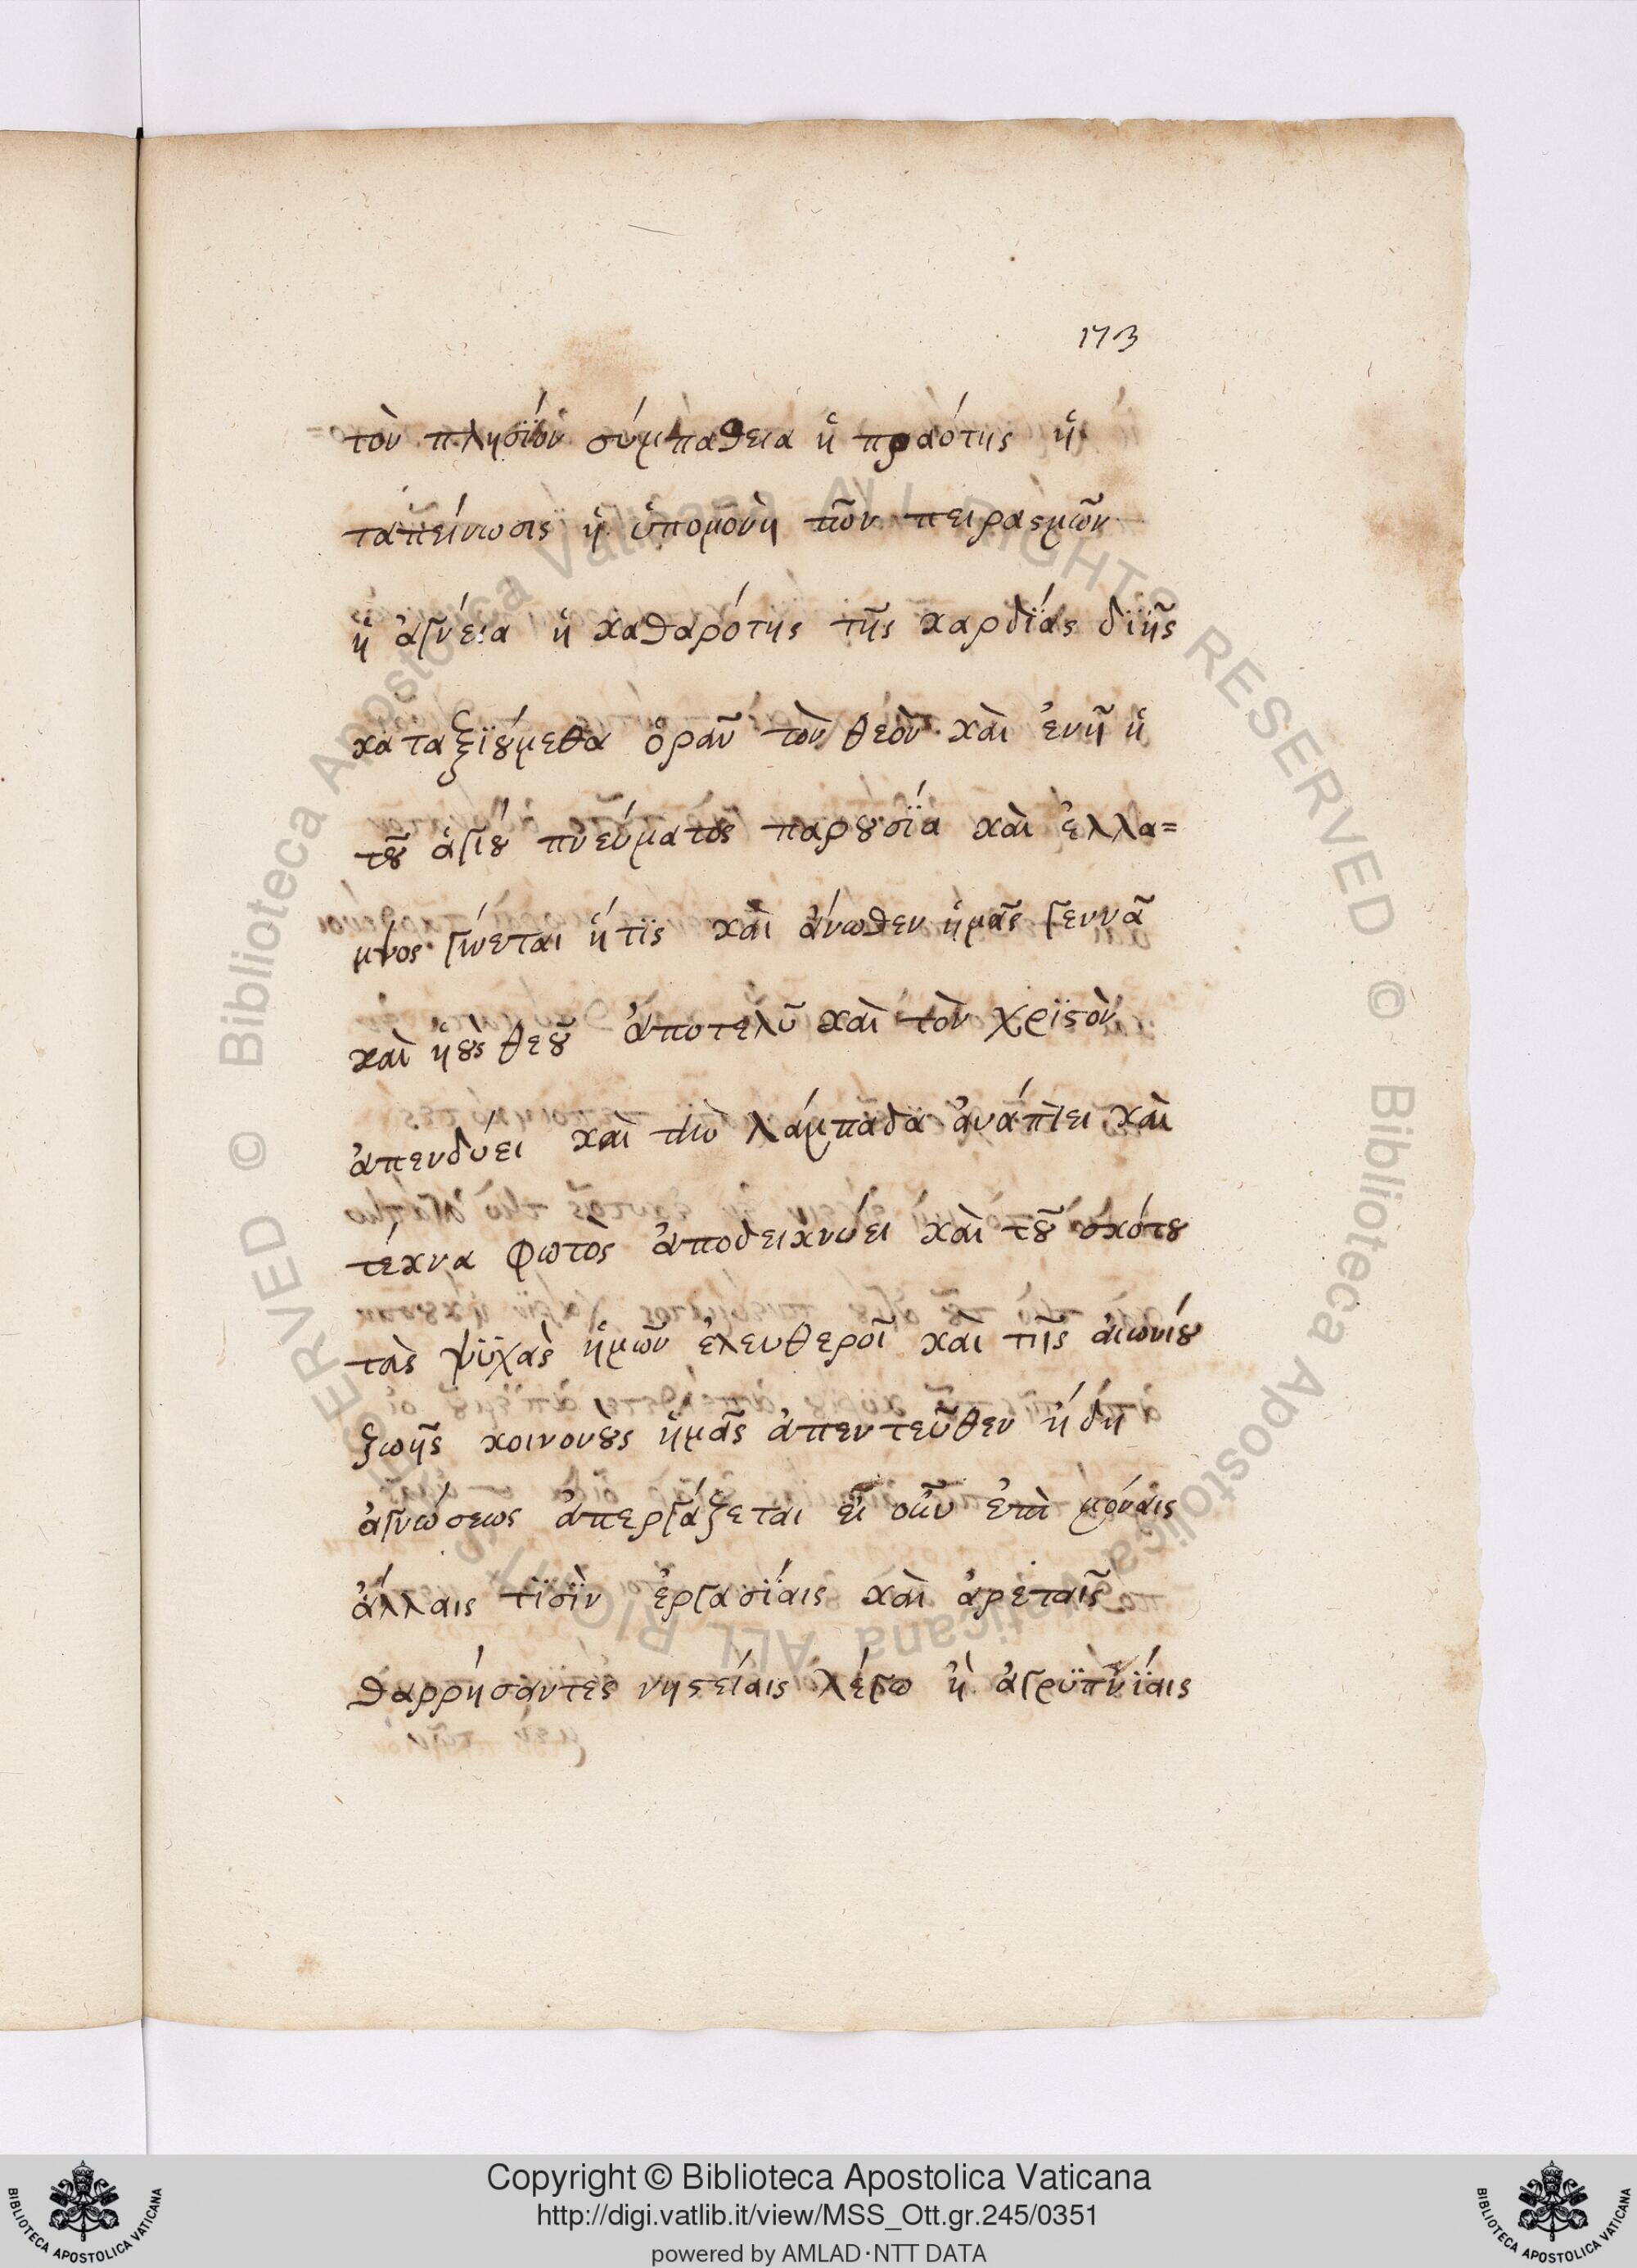 173
τὸν πλησΐον σύμπαθεια ἡ πραότης ἡ
ταπείνωσις ἡ ὑπομονὴ τῶν πειρασμῶν
ἡ ἁγνεία ἡ καθαρότης τῆς καρδΐας διῆς
καταξϊούμεθα ὁρᾶν τὸν θεὸν καὶ ἐνῆ ἡ
τοῦ ἁγίου πνεύματος παρουσϊα καὶ ἐλλα=
μψος γίνεται ἥτϊς καὶ ἄνωθεν ἡμᾶς γεννᾶ
καὶ ηοὺς θεοῦ ἀποτελῦ καὶ τὸν χρϊστὸν
ἀπενδύει καὶ τὴν λάμπαδα ἀνάπτει καὶ
τέκνα φωτὸς ἀποδεικνύει καὶ τοῦ σκότου
τὰς ψϋχὰς ἡμῶν ἐλευθεροῖ καὶ τῆς αἰωνίου
ζωῆς κοινονοὺς ἡμᾶς ἀπεντεῦθεν ἤδη
ἀγνώσεως ἀπεργάζεται εἰ οὖν ἐπὶ μόναις
ἄλλαις τϊσϊν ἐργασϊαις καὶ ἀρεταῖς
θαρρήσαντες νηστείαις λέγω ἢ ἀγρϋπνϊαις
Copyright © Biblioteca Apostolica Vaticana
http://digi.vatlib.it/view/MSS_Ott.gr.245/0351
powered by AMLAD·NTT DATA
BIBLIOTECA APOSTOLICA VATICANA
BIBLIOTECA APOSTOLICA VATICANA